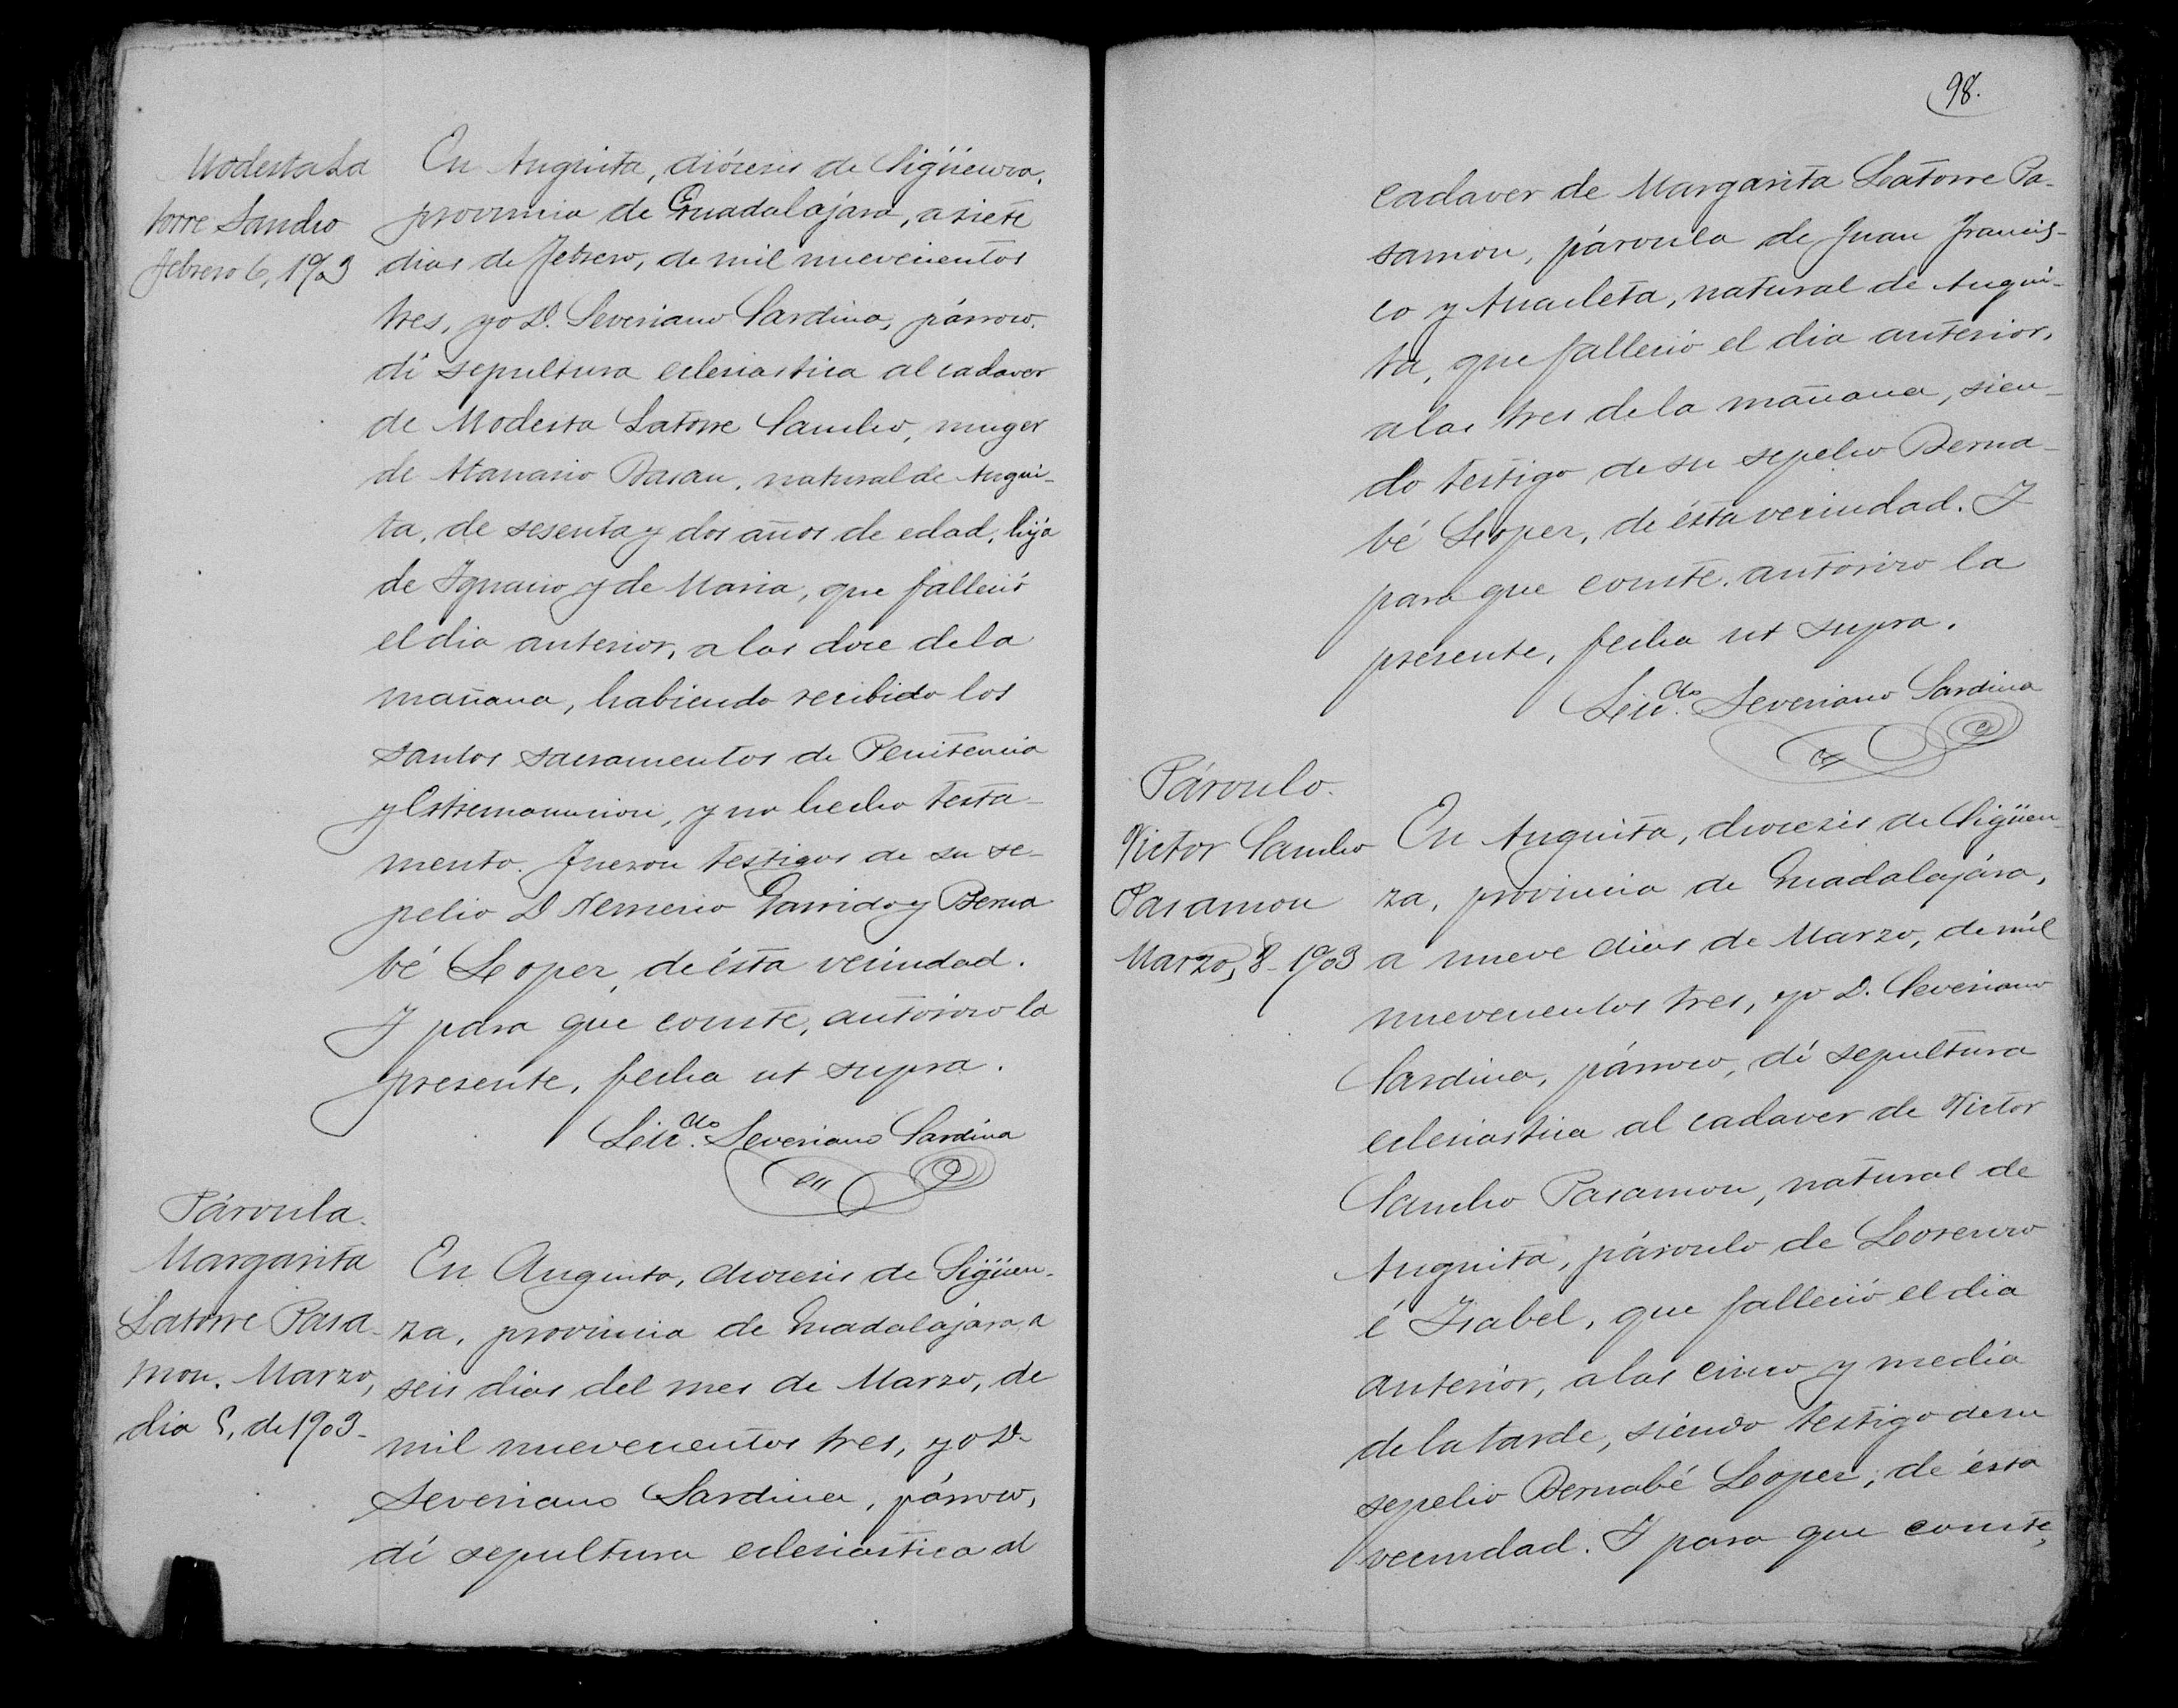 Modesta La
torre Sancho
Febrero 6, 1903
En Anguita, diócesis de Sigüenza,
provincia de Guadalajara, a siete
dias de Febrero, de mil nuevecientos
tres, yo D. Severiano Sardina, párroco,
dí sepultura eclesiastica al cadaver
de Modesta Latorre Sancho, muger
de Atanasio Basan, natural de Angui-
ta, de sesenta y dos años de edad, hija
de Ignacio y de Maria, que falleció
el dia anterior, a las doce de la
mañana, habiendo recibido los
santos sacramentos de Penitencia
y Estremauncion, y no hecho testa-
mento. Fueron testigos de su se-
pelio D Nemesio Garrido y Berna
bé Lopez, de ésta vecindad.
Y para que conste, autorizo la
presente, fecha ut supra.
Licdo. Severiano Sardina
Párvula.
Margarita
Latorre Pasa-
mon. Marzo,
dia 5, de 1903-
En Anguita, diocesis de Sigüen-
za, provincia de Guadalajara, a
seis dias del mes de Marzo, de
mil nuevecientos tres, yo D.
Severiano Sardina, párroco,
dí sepultura eclesiastica al
98.
cadaver de Margarita Latorre Pa-
samon, párvula de Juan Francis-
co y Anacleta, natural de Angui-
ta, que falleció el dia anterior,
a las tres de la mañana, sien-
do testigo de su sepelio Berna-
bé Lopez, de ésta vecindad. Y
para que conste, autorizo la
presente, fecha ut supra.
Licdo. Severiano Sardina
Párvulo.
Victor Sancho
Pasamon
Marzo, 8- 1903
En Anguita, diocesis de Sigüen-
za, provincia de Guadalajara,
a nueve dias de Marzo, de mil
nuevecientos tres, yo D. Severiano
Sardina, párroco, dí sepultura
eclesiastica al cadaver de Victor
Sancho Pasamon, natural de
Anguita, párvulo de Lorenzo
é Isabel, que falleció el dia
anterior, a las cinco y media
de la tarde, siendo testigo de su
sepelio Bernabé Lopez, de ésta
vecindad. Y para que conste,